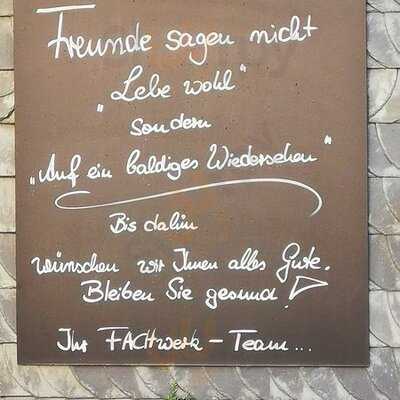 Freunde sagen nicht
"Lebe wohl"
sondern
„Auf ein baldiges Wiedersehen"
Bis dahin
wünschen wir Ihnen alles Gute.
Bleiben Sie gesund!
Ihr FACHwerk - Team...